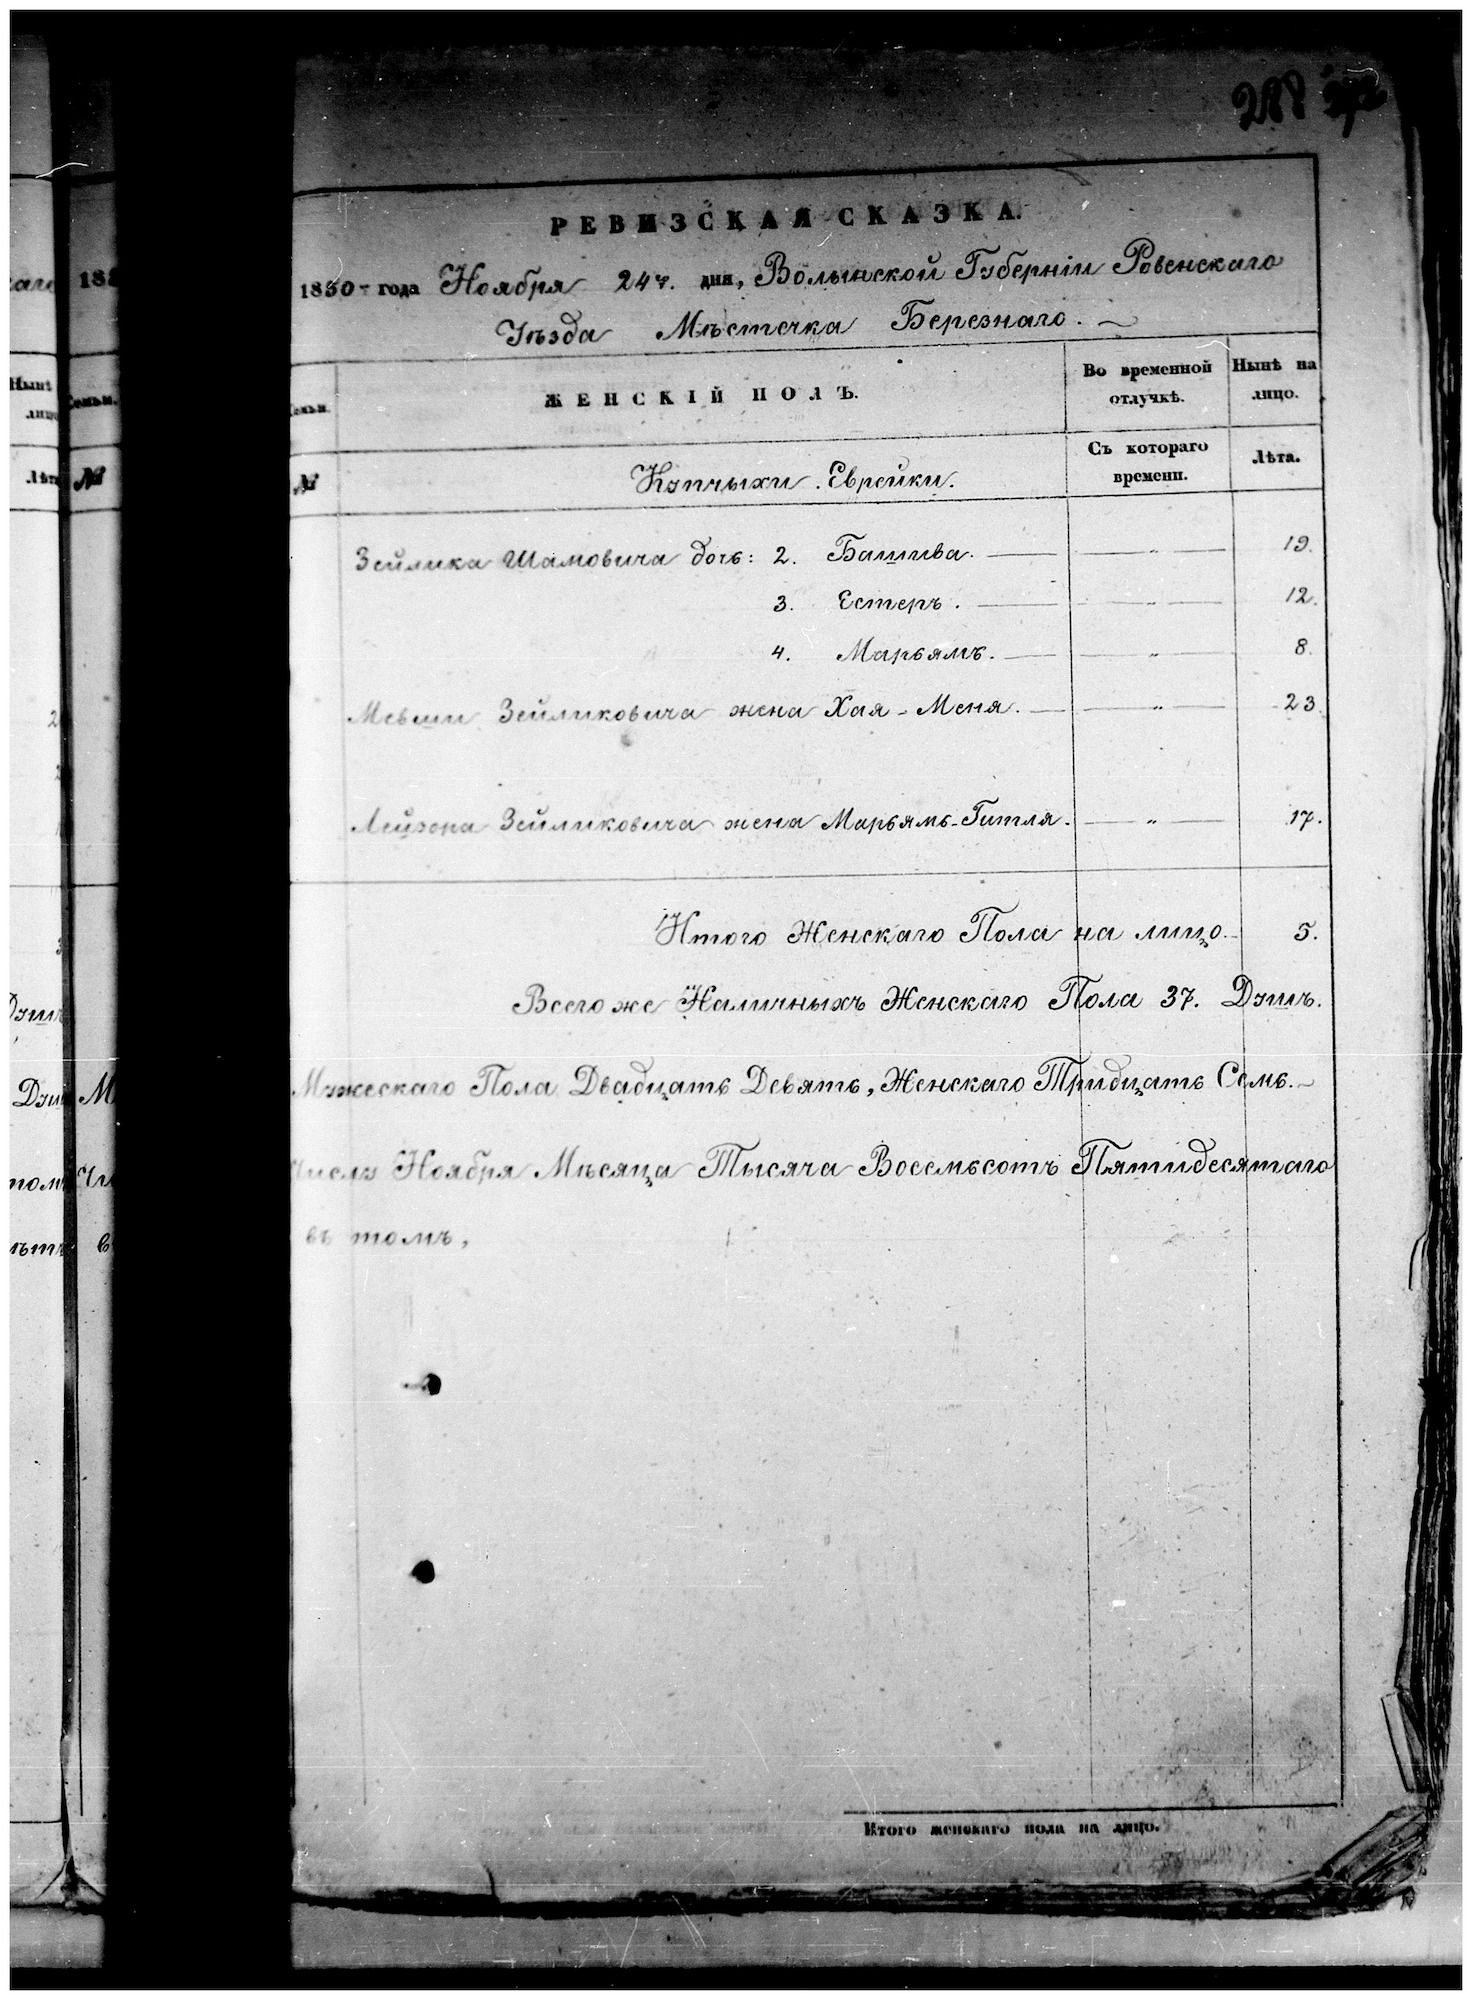 288
РЕВИЗСКАЯ СКАЗКА.
1850 года Ноября 24ч. дня, Волынской Губерніи Ровенскаго
Уѣзда Мѣстечка Березнаго.
ЖЕНСКІЙ ПОЛЪ.
Во временной отлучкѣ.
Нынѣ на лицо.
№
Купчыхи Еврейки.
Съ котораго времени.
Лѣта.
Зейлика Шамовича дочь: 2. Башива. — „ — 19.
3. Естеръ. — „ — 12.
4. Марьямъ. — „ — 8.
Мевши Зейликовича жена Хая-Меня. — „ — 23.
Лейзора Зейликовича жена Марьямъ-Гитля. — „ — 17.
Итого Женскаго Пола на лицо. 5.
Всего же Наличныхъ Женскаго Пола 37. Душъ.
Мужескаго Пола Двадцать Девять, Женскаго Тридцать Семь.
Числу Ноября Мѣсяца Тысяча Восемьсотъ Пятидесятаго
въ томъ,
Итого женскаго пола на лицо.